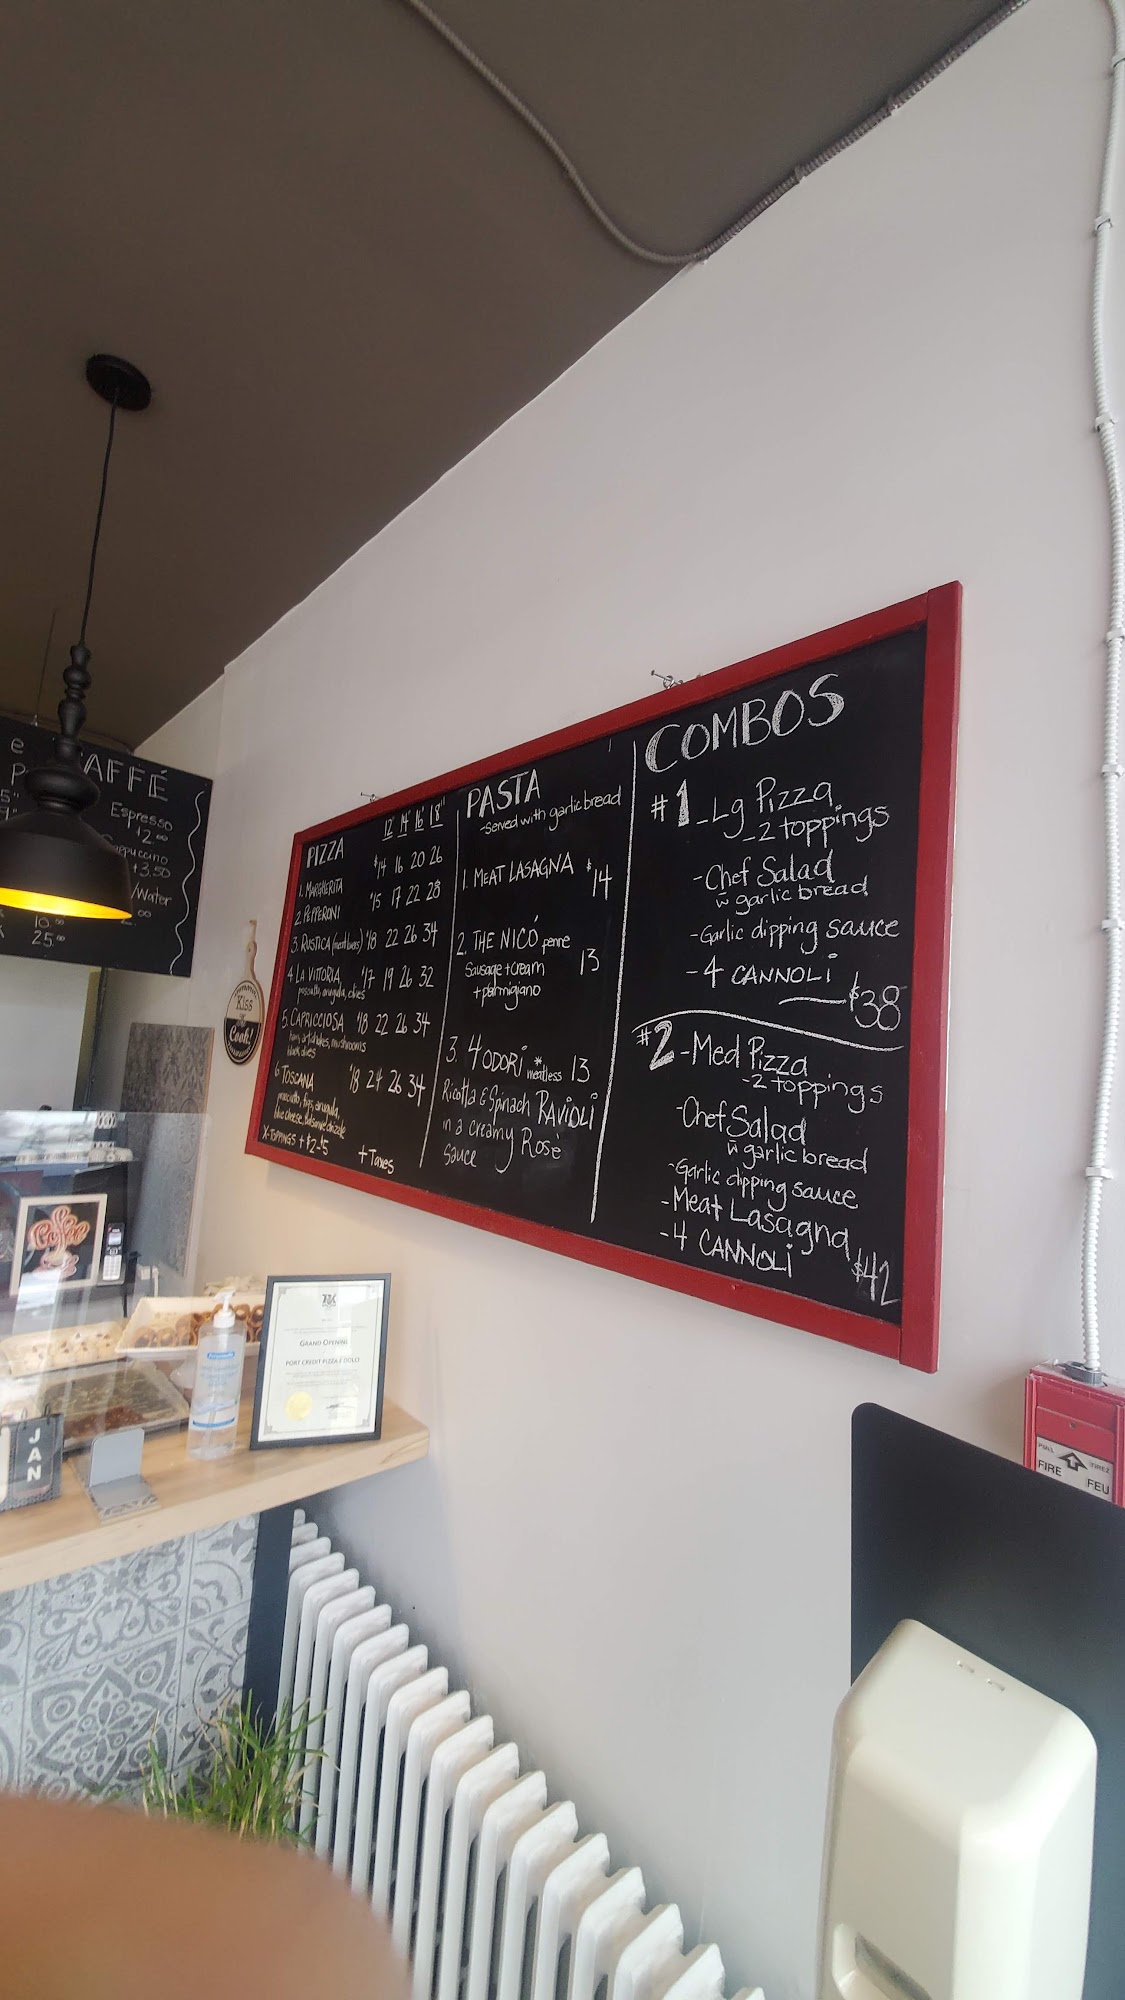 CAFFÉ
Espresso
$2.00
+3.50
/Water
10.00
25.00
Kiss
Cook!
PIZZA 12" 14" 16" 18"
1. MARGHERITA $14 16 20 26
2. PEPPERONI $15 17 22 28
3. RUSTICA (meat lovers) $18 22 26 34
4. LA VITTORIA $17 19 26 32
prosciutto, arugula, olives
5. CAPRICCIOSA $18 22 26 34
ham, artichokes, mushrooms
black olives
6. TOSCANA $18 24 26 34
prosciutto, figs, arugula,
blue cheese, balsamic drizzle
X-TOPPINGS + $2-5
+ Taxes
PASTA
-Served with garlic bread
1. MEAT LASAGNA $14
2. THE NICÓ penne 13
Sausage + cream
+ parmigiano
3. 4 ODORI *meatless 13
Ricotta & Spinach RAVIOLI
in a creamy Rosè
Sauce
COMBOS
#1 - Lg Pizza
-2 toppings
-Chef Salad
w̄ garlic bread
-Garlic dipping sauce
-4 CANNOLI
$38
#2 - Med Pizza
-2 toppings
-Chef Salad
w̄ garlic bread
-Garlic dipping sauce
-Meat Lasagna
-4 CANNOLI $42
Coffee
GRAND OPENING
PORT CREDIT PIZZA E DOLCI
JAN
PULL TIREZ
FIRE FEU